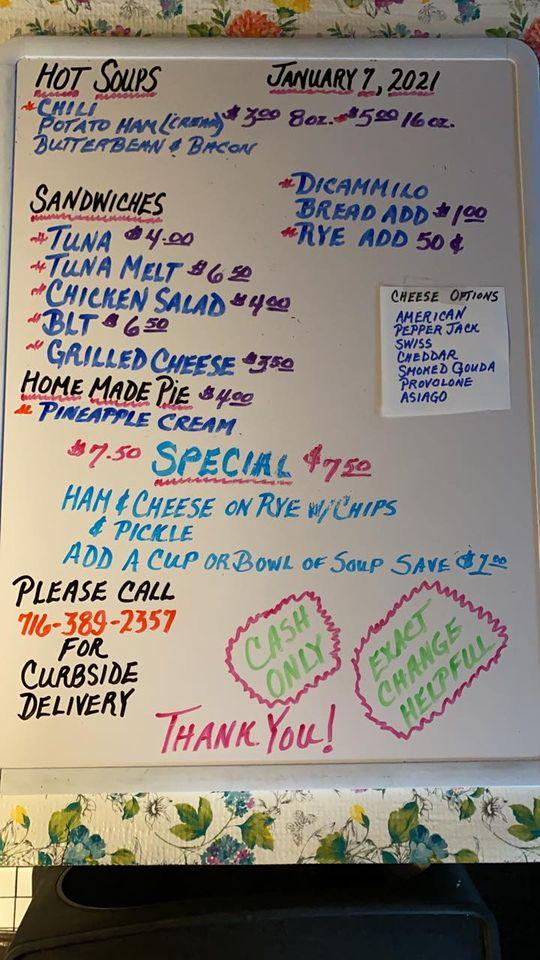 HOT SOUPS
JANUARY 7, 2021
* CHILI
POTATO HAM (CREAM) $3.00 8 oz. * $5.00 16 oz.
BUTTERBEAN & BACON
SANDWICHES
* TUNA $4.00
* TUNA MELT $6.50
* CHICKEN SALAD $4.00
* BLT $6.50
* GRILLED CHEESE $3.50
* DICAMMILO
BREAD ADD $1.00
* RYE ADD 50¢
CHEESE OPTIONS
AMERICAN
PEPPER JACK
SWISS
CHEDDAR
SMOKED GOUDA
PROVOLONE
ASIAGO
HOME MADE PIE $4.00
* PINEAPPLE CREAM
$7.50 SPECIAL $7.50
HAM & CHEESE ON RYE W/ CHIPS
& PICKLE
ADD A CUP OR BOWL OF SOUP SAVE $1.00
PLEASE CALL
716-389-2357
FOR
CURBSIDE
DELIVERY
CASH
ONLY
EXACT
CHANGE
HELPFUL
THANK YOU!